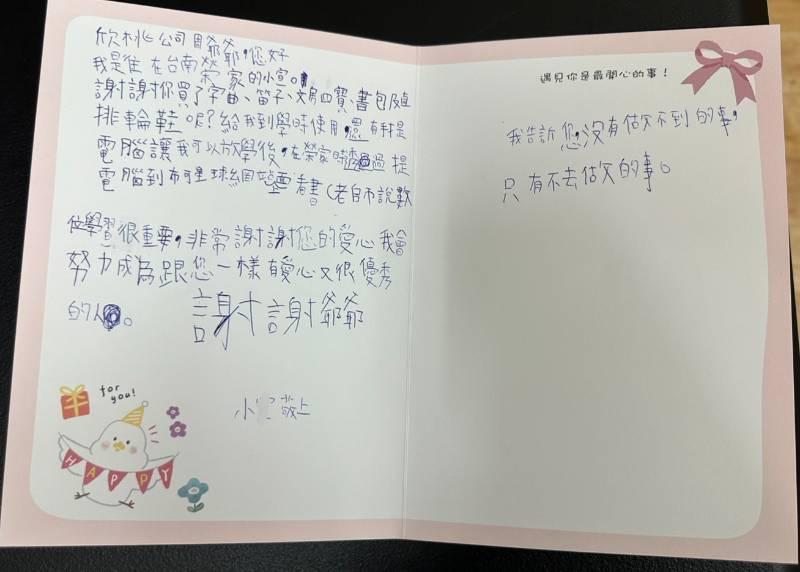 欣桃公司周爺爺,您好
我是住在台南榮家的小宣。
謝謝你買了字曲、笛子、文房四寶、書包及直
排輪鞋呢?給我到學時使用,還有手提
電腦讓我可以放學後,在榮家時透過提
電腦到布可星球網站看書(老師說數
位學習很重要,非常謝謝您的愛心我會
努力成為跟您一樣有愛心又很優秀
的人。
謝謝爺爺
小 敬上
for you!
HAPPY
遇見你是最開心的事!
我告訴您沒有做不到的事,
只有不去做的事。